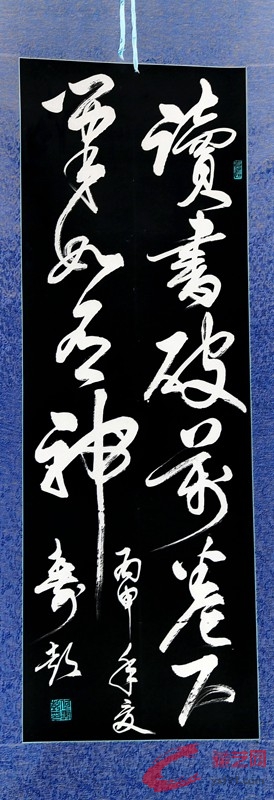 讀書破萬卷下
筆如有神
丙申年夏